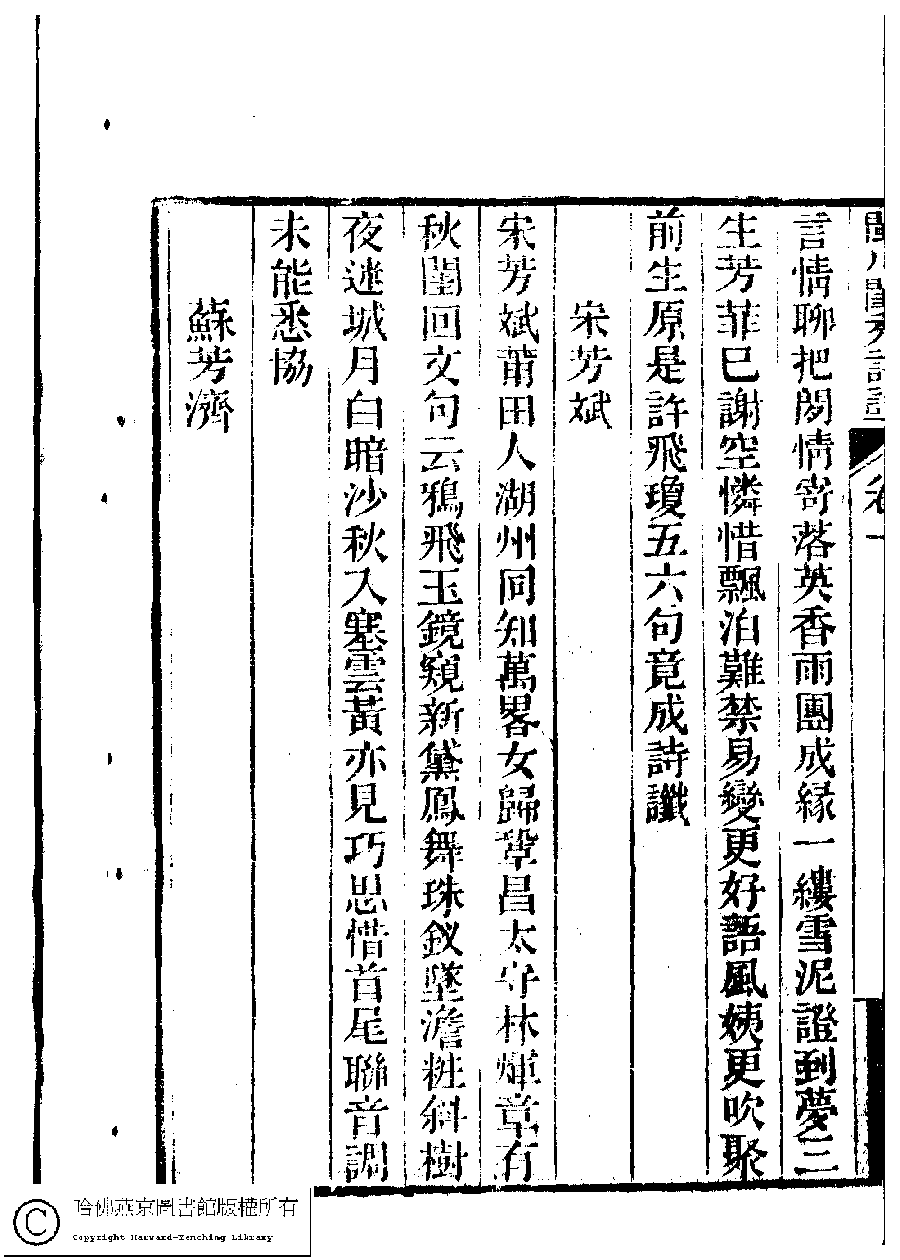 閩川閨秀詩話 卷一
言情聊把閒情寄落英香雨團成緣一縷雪泥證到夢三
生芳菲已謝空憐惜飄泊難禁易變更好語風姨更吹聚
前生原是許飛瓊五六句竟成詩讖
宋芳斌
宋芳斌莆田人湖州同知萬畧女歸鞏昌太守林煇章有
秋閨回文句云鴉飛玉鏡窺新黛鳳舞珠釵墜澹粧斜樹
夜迷城月白暗沙秋入塞雲黃亦見巧思惜首尾聯音調
未能悉協
蘇芳濟
哈佛燕京圖書館版權所有
Copyright Harvard-Yenching Library